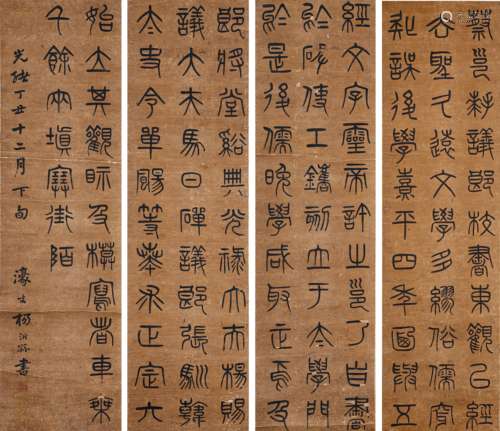 蔡邕拜議郎校書東觀已經
聖久遠文學多繆俗儒穿
誤後學熹平四年與五
經文字靈帝許之邕乃自書
於碑使工鐫刻立于太學門
於是後儒晚學咸取正焉及
郎將堂谿典光祿大夫楊賜
議大夫馬日磾議郎張馴韓
太史令單颺等奏求正定六
始立其觀視及模寫者車乘
千餘兩填塞街陌
光緒丁丑十二月下旬
濠叟楊沂孫書